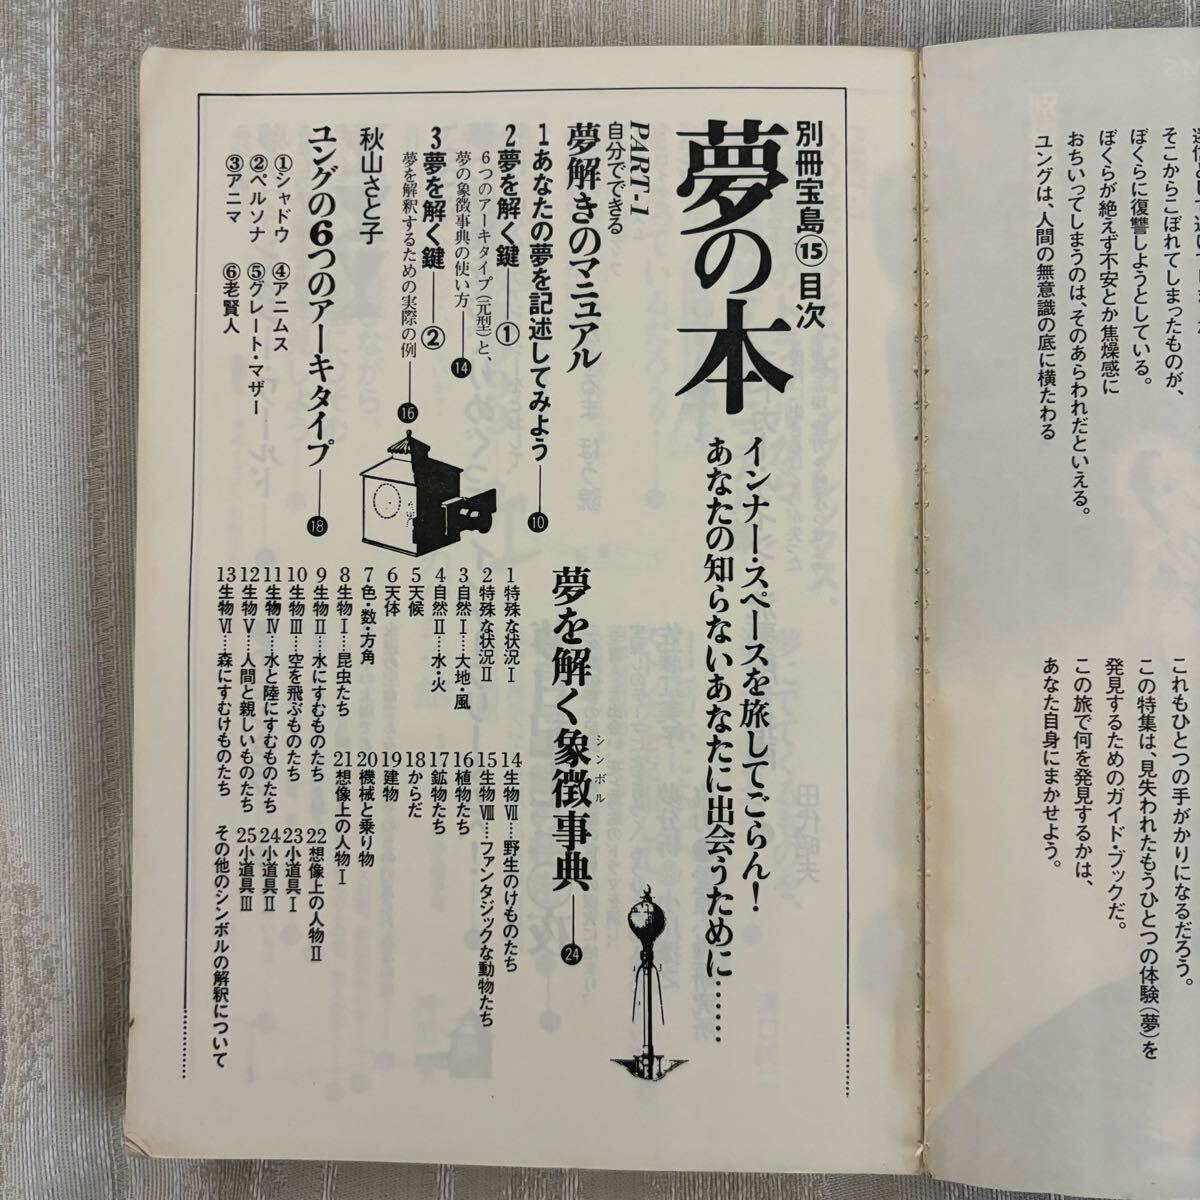 別冊宝島⑮目次
夢の本
インナー・スペースを旅してごらん!
あなたの知らないあなたに出会うために……
PART-1
自分でできる
夢解きのマニュアル
1あなたの夢を記述してみよう 10
2夢を解く鍵①
6つのアーキタイプ(元型)と、
夢の象徴事典の使い方 14
3夢を解く鍵②
夢を解釈するための実際の例 16
秋山さと子
ユングの6つのアーキタイプ 18
①シャドウ
②ペルソナ
③アニマ
④アニムス
⑤グレート・マザー
⑥老賢人
夢を解く象徴事典 24
シンボル
1特殊な状況Ⅰ
2特殊な状況Ⅱ
3自然Ⅰ…大地・風
4自然Ⅱ…水・火
5天候
6天体
7色・数・方角
8生物Ⅰ…昆虫たち
9生物Ⅱ…水にすむものたち
10生物Ⅲ…空を飛ぶものたち
11生物Ⅳ…水と陸にすむものたち
12生物Ⅴ…人間と親しいものたち
13生物Ⅵ…森にすむけものたち
14生物Ⅶ…野生のけものたち
15生物Ⅷ…ファンタジックな動物たち
16植物たち
17鉱物たち
18からだ
19建物
20機械と乗り物
21想像上の人物Ⅰ
22想像上の人物Ⅱ
23小道具Ⅰ
24小道具Ⅱ
25小道具Ⅲ
その他のシンボルの解釈について
そこからこぼれてしまったものが、
ぼくらに復讐しようとしている。
ぼくらが絶えず不安とか焦燥感に
おちいってしまうのは、そのあらわれだといえる。
ユングは、人間の無意識の底に横たわる
これもひとつの手がかりになるだろう。
この特集は、見失われたもうひとつの体験(夢)を
発見するためのガイド・ブックだ。
この旅で何を発見するかは、
あなた自身にまかせよう。